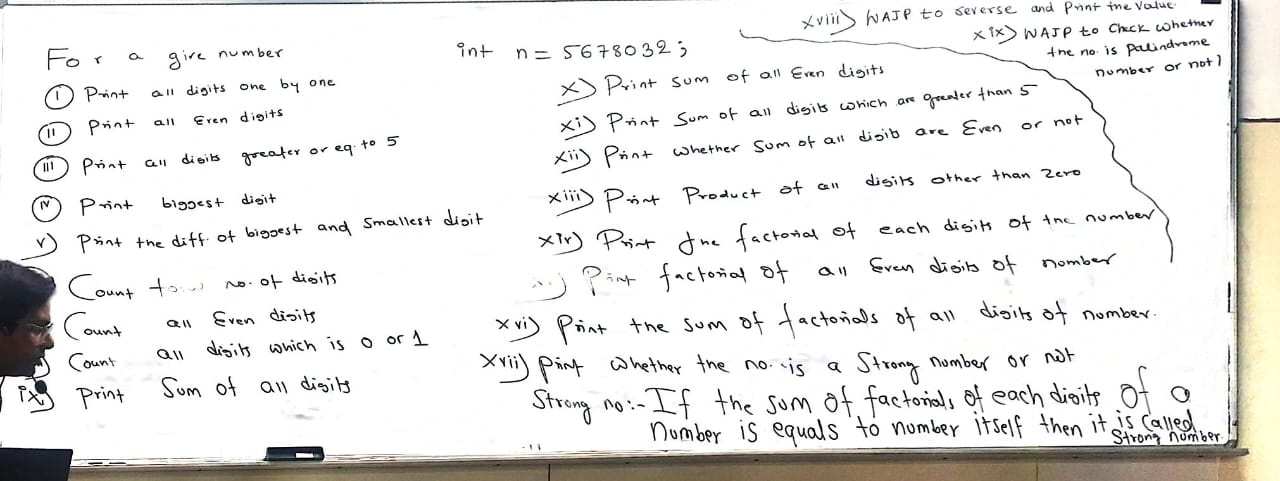 For a give number
int n = 5678032;
I Print all digits one by one
II Print all Even digits
III Print all digits greater or eq. to 5
IV Print biggest digit
V) Print the diff. of biggest and Smallest digit
Count no. of digits
Count all Even digits
Count all digits which is 0 or 1
ix) Print Sum of all digits
x) Print Sum of all Even digits
xi) Print Sum of all digits which are greater than 5
xii) Print whether Sum of all digits are Even or not
xiii) Print Product of all digits other than Zero
xiv) Print the factorial of each digits of the number
Print factorial of all Even digits of number
xvi) Print the sum of factorials of all digits of number.
xvii) Print whether the no. is a Strong number or not
Strong no:- If the sum of factorials of each digits of a
number is equals to number itself then it is Called
Strong number
xviii) WAJP to reverse and Print the value.
xix) WAJP to Check whether
the no. is palindrome
number or not)